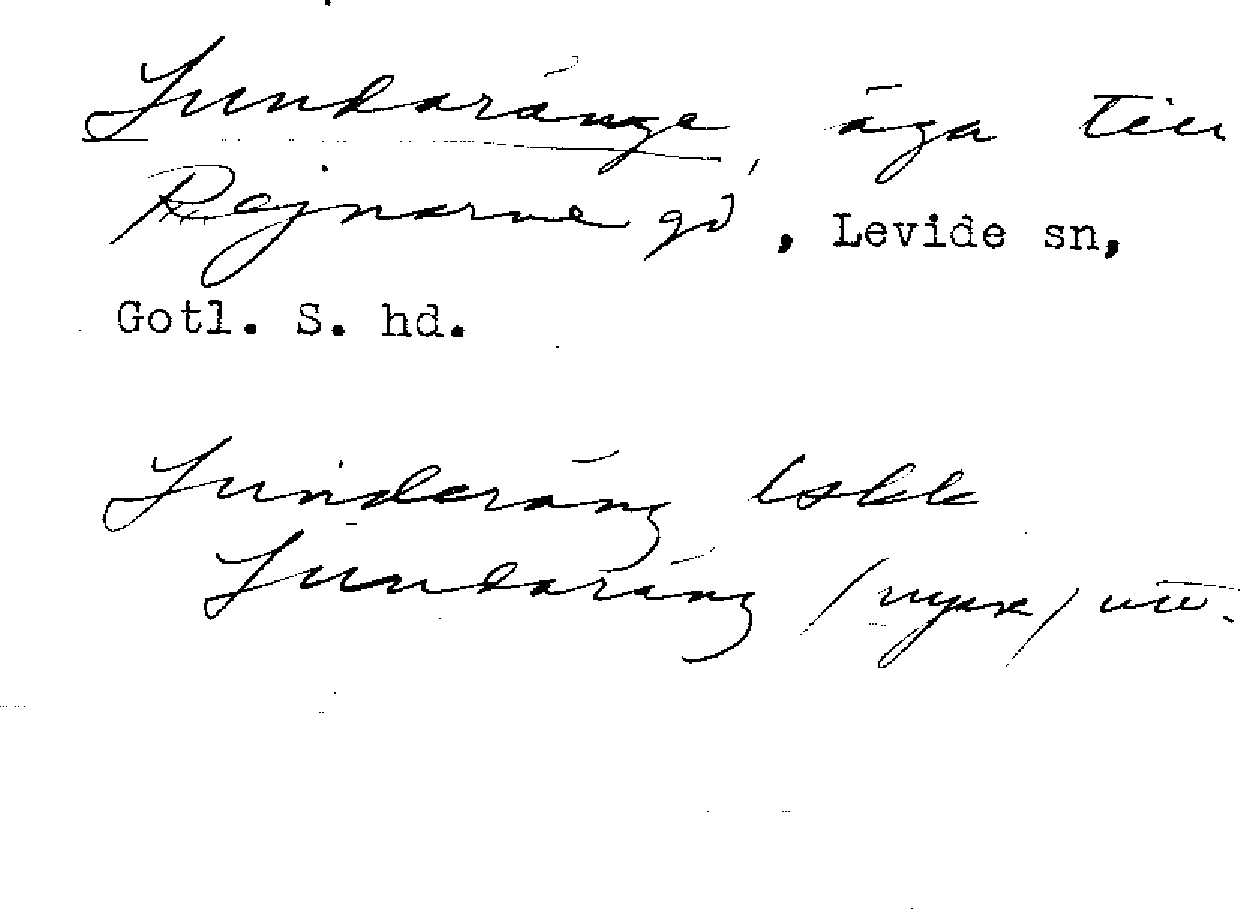 Lundaränge, äga till
Rejnarve gd, Levide sn,
Gotl. S. hd.
Lunderäng lskk
Lundaräng /nyare/ utt.